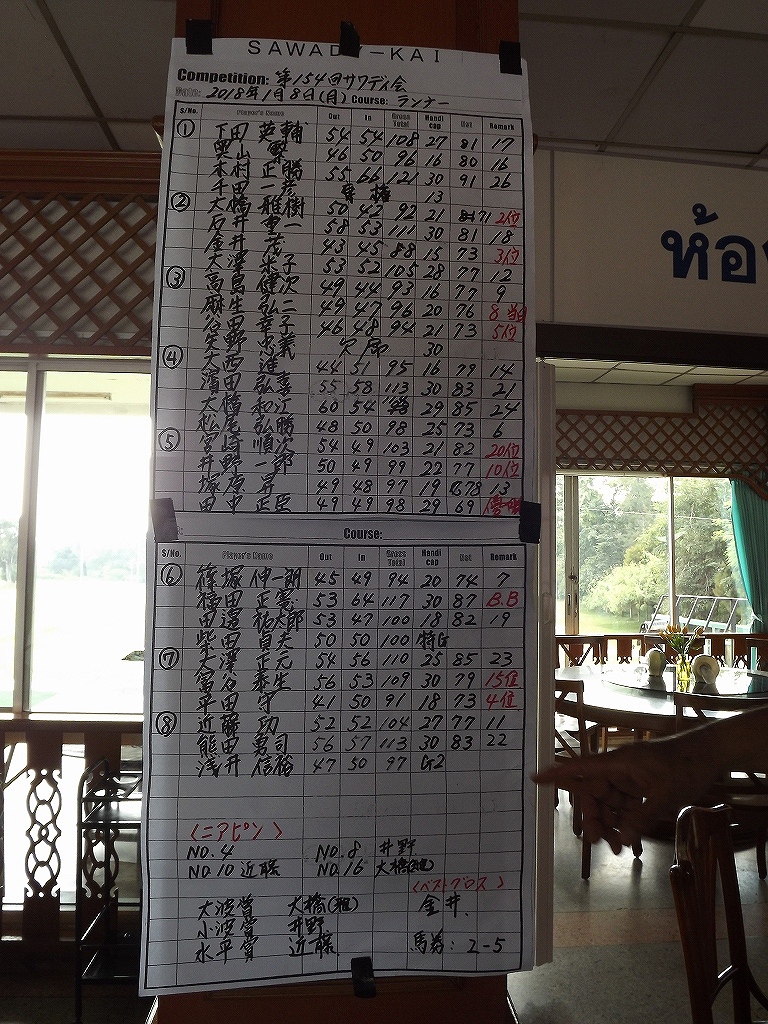 SAWADY-KAI
Competition: 第154回サワディ会
Date: 2018年1月8日(月) Course: ランナー
S/No. Player's Name Out In Gross Total Handi cap Net Remark
① 下田 英輔 54 54 108 27 81 17
奥山 46 50 96 16 80 16
木村 正勝 55 66 121 30 91 26
千田 一彦 棄権 13
② 大橋 雅樹 50 42 92 21 71 2位
石井 重一 58 53 111 30 81 18
金井 茂 43 45 88 15 73 3位
大澤 米子 53 52 105 28 77 12
③ 高島 健次 49 44 93 16 77 9
麻生 弘二 49 47 96 20 76 8
谷田 幸子 46 48 94 21 73 5位
矢野 忠義 欠席 30
④ 大西 進 44 51 95 16 79 14
濱田 弘喜 55 58 113 30 83 21
大橋 和江 60 54 29 85 24
松尾 弘勝 48 50 98 25 73 6
⑤ 宮崎 順次 54 49 103 21 82 20位
井野 一郎 50 49 99 22 77 10位
塚原 昇 49 48 97 19 78 13
田中 正臣 49 49 98 29 69 優勝
Course:
S/No. Player's Name Out In Gross Total Handi cap Net Remark
⑥ 篠塚 伸一朗 45 49 94 20 74 7
福田 正憲 53 64 117 30 87 B.B
田邊 祐太郎 53 47 100 18 82 19
柴田 貞夫 50 50 100 特G
⑦ 大澤 正元 54 56 110 25 85 23
宮谷 泰生 56 53 109 30 79 15位
平田 守 41 50 91 18 73 4位
⑧ 近藤 功 52 52 104 27 77 11
熊田 勇司 56 57 113 30 83 22
浅井 信裕 47 50 97 G2
〈ニアピン〉
NO. 4 NO. 8 井野
NO. 10 近藤 NO. 16 大橋(雅)
〈ベストグロス〉
大波賞 大橋(雅) 金井
小波賞 井野
水平賞 近藤 馬券: 2-5
ห้อ